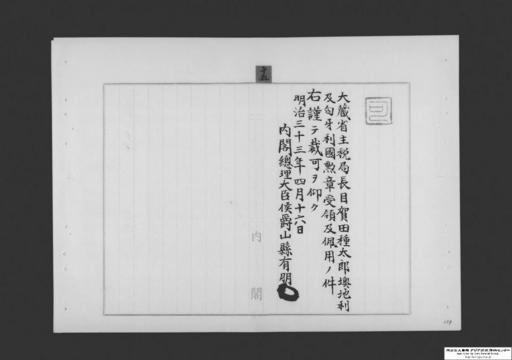 大藏省主税局長目賀田種太郎墺地利
及匈牙利國勲章受領及佩用ノ件
右謹テ裁可ヲ仰ク
明治三十三年四月十六日
内閣總理大臣侯爵山縣有朋
内閣